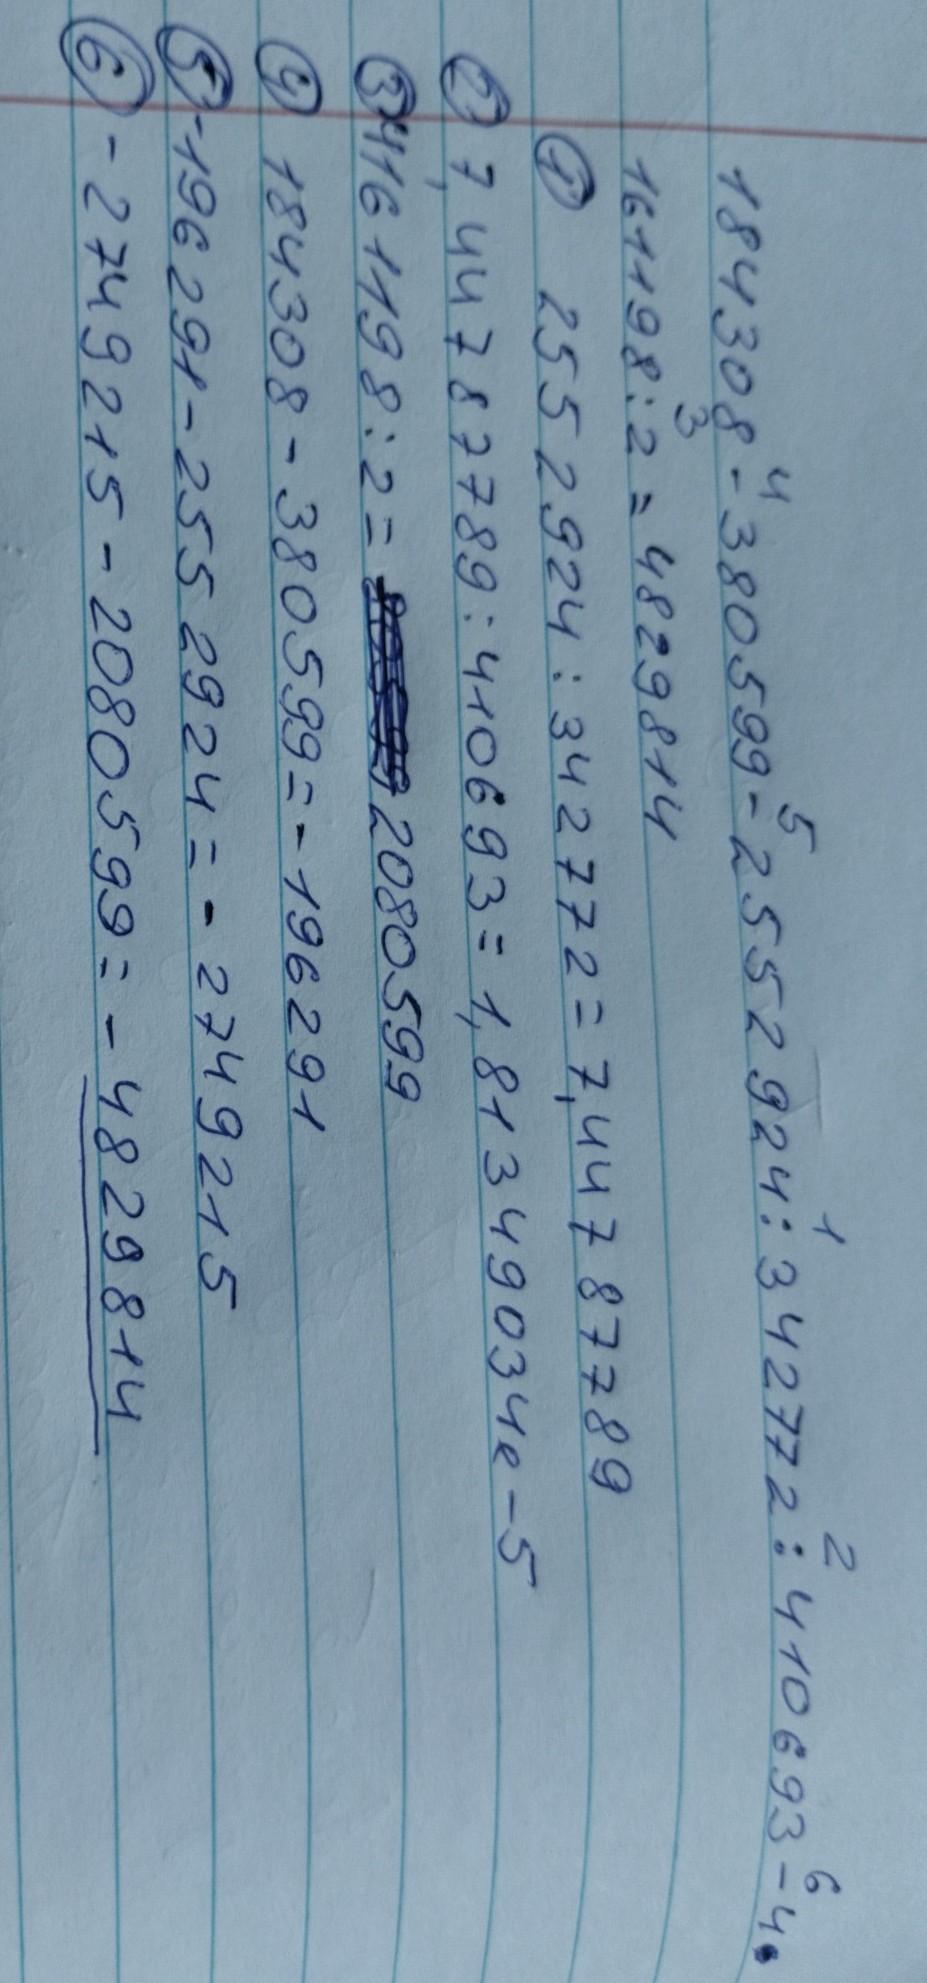 184308-⁴380599-⁵2552924:¹342772:²410693-⁶4
161198:³2=4829814
① 2552924:342772=7,447877​89
② 7,44787789:410693=1,81349034e-5
③ 4161198:2= 2080599
④ 184308-380599=-196291
⑤ -196291-2552924=-2749215
⑥ -2749215-2080599=-4829814